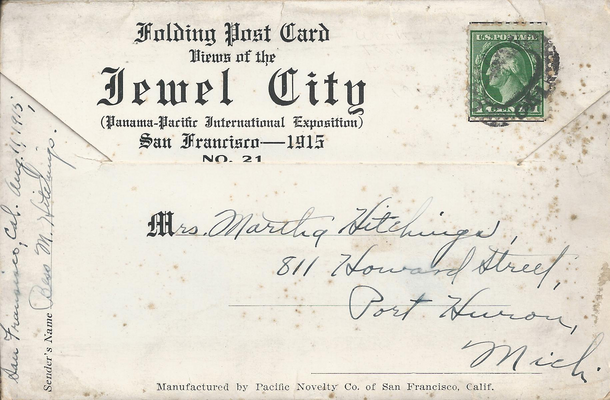 Folding Post Card
Views of the
Jewel City
(Panama-Pacific International Exposition)
San Francisco—1915
NO. 21
U.S. POSTAGE
Mrs. Martha Hitchings,
811 Howard Street,
Port Huron,
Mich.
San Francisco, Cal. Aug. 11, 1915,
Sender's Name M. Hitchings.
Manufactured by Pacific Novelty Co. of San Francisco, Calif.